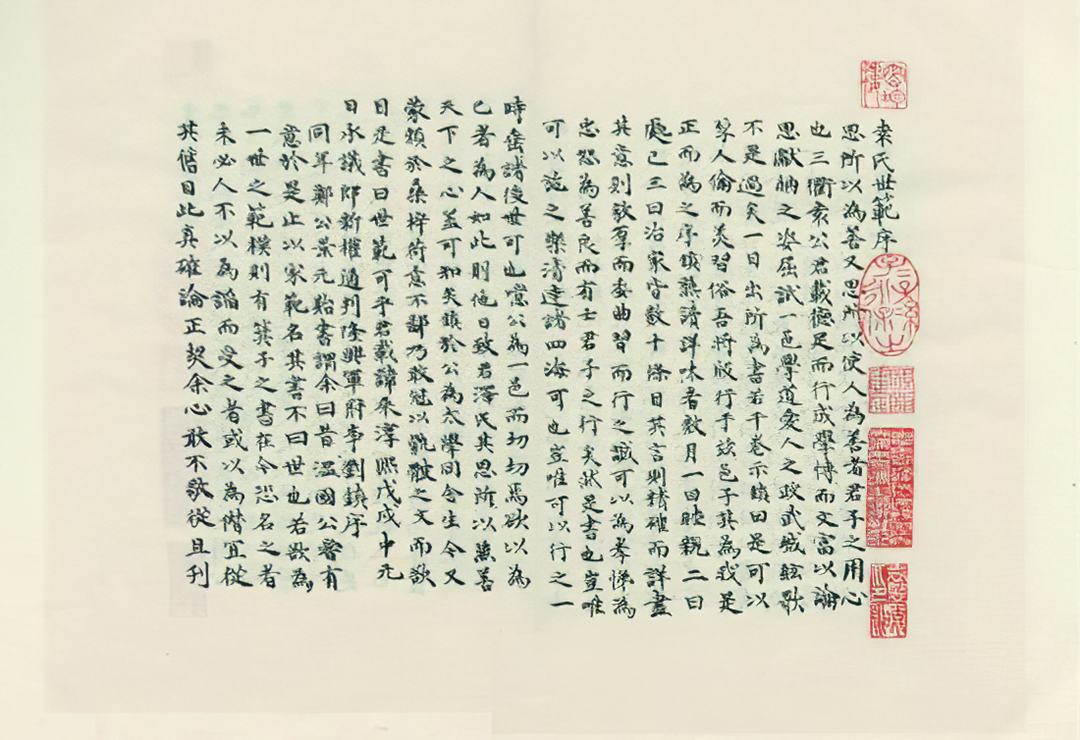 袁氏世範序
思所以為善又思所以使人為善者君子之用心
也三衢袁公君載德足而行成學博而文富以論
思獻納之姿屈試一邑學道愛人之政武城絃歌
不是過矣一日出所為書若干卷示鎮曰是可以
厚人倫而美習俗吾將版行于茲邑子其為我是
正而為之序鎮熟讀詳味者數月一曰睦親二曰
處己三曰治家皆數十條目其言則精確而詳盡
其意則敦厚而委曲習而行之誠可以為孝悌為
忠恕為善良而有士君子之行矣然是書也豈唯
可以施之樂清達諸四海可也豈唯可以行之一
時垂諸後世可也噫公為一邑而切切焉欲以為
己者為人如此則他日致君澤民其思所以兼善
天下之心蓋可知矣鎮於公為太學同舍生今又
蒙賴於桑梓荷意不鄙乃敢冠以骫骳之文而欲
目是書曰世範可乎君載諱采淳熙戊戌中元
日承議郎新權通判隆興軍府事劉鎮序
同年鄭公景元貽書謂余曰昔溫國公嘗有
意於是止以家範名其書不曰世也若欲為
一世之範模則有箕子之書在今恐名之者
未必人不以為諂而受之者或以為僭宜從
其舊目此真確論正契余心敢不敬從且刊